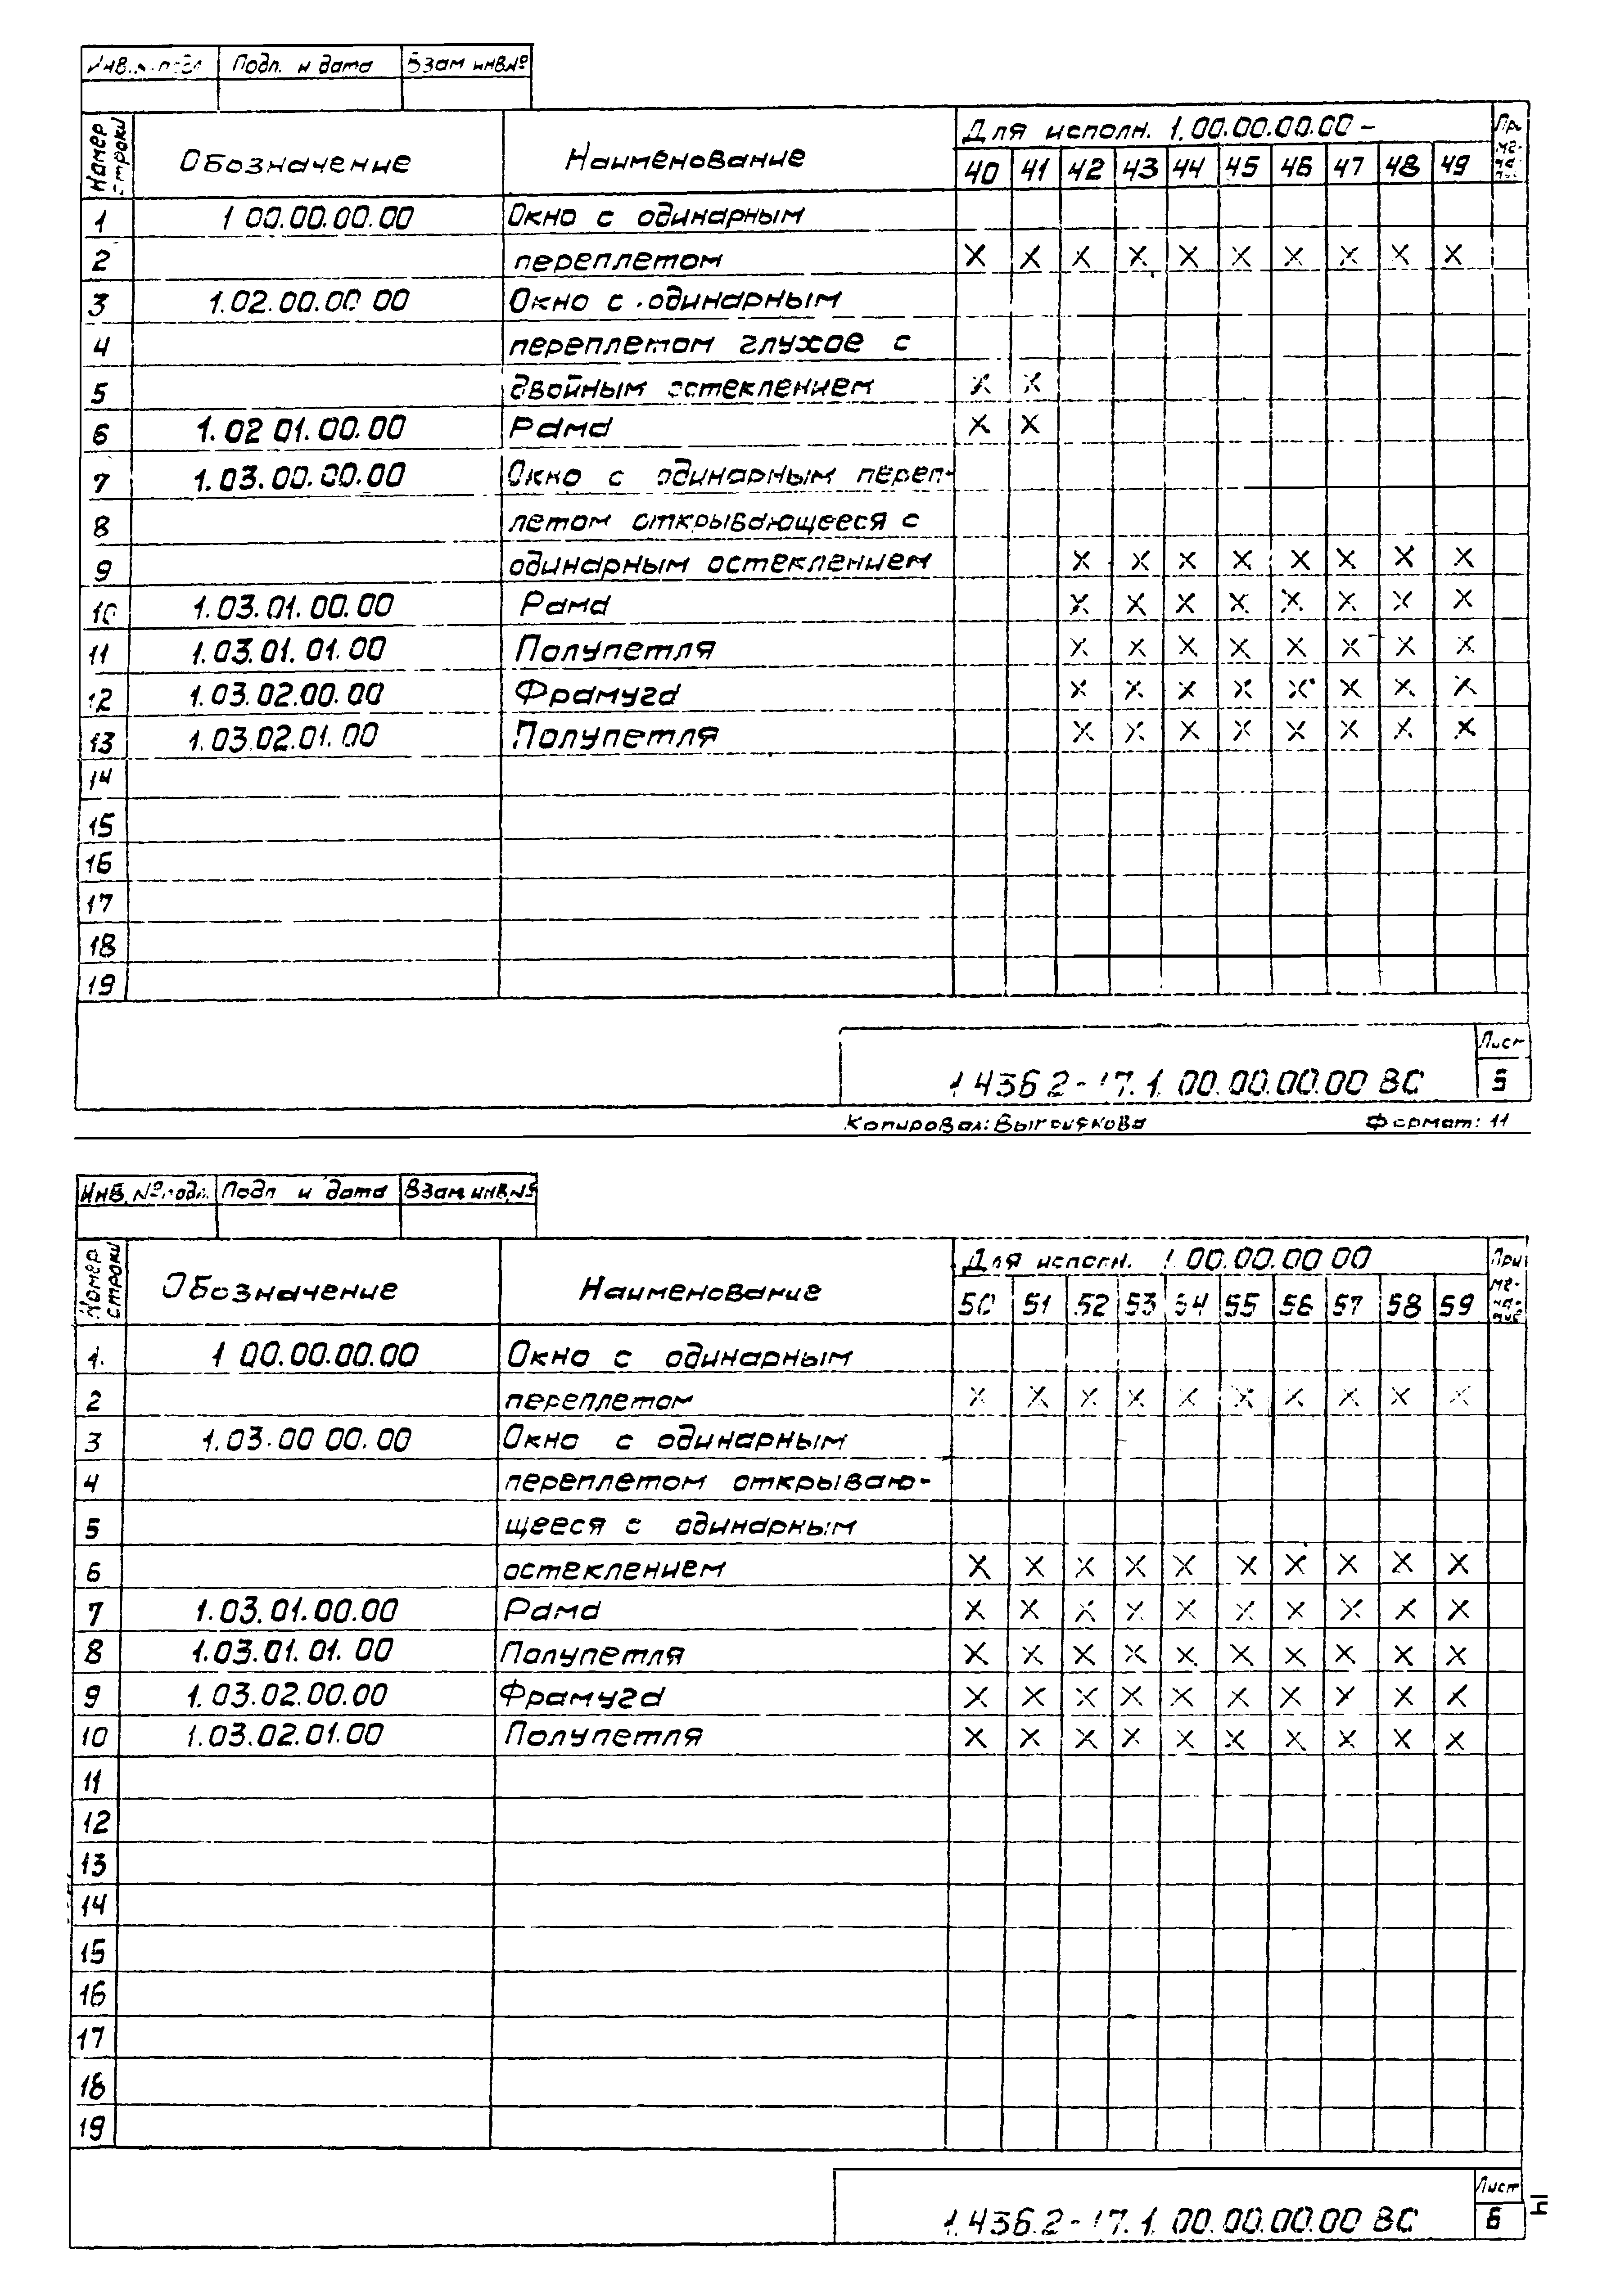 Подп. и дата Взам инв.№
Номер строки Обозначение Наименование Для исполн. 1.00.00.00.00 –
40 41 42 43 44 45 46 47 48 49
1 1 00.00.00.00 Окно с одинарным
2 переплетом X X X X X X X X X X
3 1.02.00.00 00 Окно с одинарным
4 переплетом глухое с
5 двойным остеклением X X
6 1.02 01.00.00 Рама X X
7 1.03.00.00.00 Окно с одинарным переп-
8 летом открывающееся с
9 одинарным остеклением X X X X X X X X
10 1.03.01.00.00 Рама X X X X X X X X
11 1.03.01.01.00 Полупетля X X X X X X X X
12 1.03.02.00.00 Фрамуга X X X X X X X X
13 1.03.02.01.00 Полупетля X X X X X X X X
14
15
16
17
18
19
Лист
1.436.2-17.1.00.00.00.00 ВС 5
Копировал: Формат: 11
Инв. № подл. Подп и дата Взам инв.№
Номер строки Обозначение Наименование Для исполн. 1.00.00.00 00 При ме- ча- ние
50 51 52 53 54 55 56 57 58 59
1. 1 00.00.00.00 Окно с одинарным
2 переплетом X X X X X X X X X X
3 1.03.00 00.00 Окно с одинарным
4 переплетом открываю-
5 щееся с одинарным
6 остеклением X X X X X X X X X X
7 1.03.01.00.00 Рама X X X X X X X X X X
8 1.03.01.01.00 Полупетля X X X X X X X X X X
9 1.03.02.00.00 Фрамуга X X X X X X X X X X
10 1.03.02.01.00 Полупетля X X X X X X X X X X
11
12
13
14
15
16
17
18
19
Лист
1.436.2-17.1.00.00.00.00 ВС 6